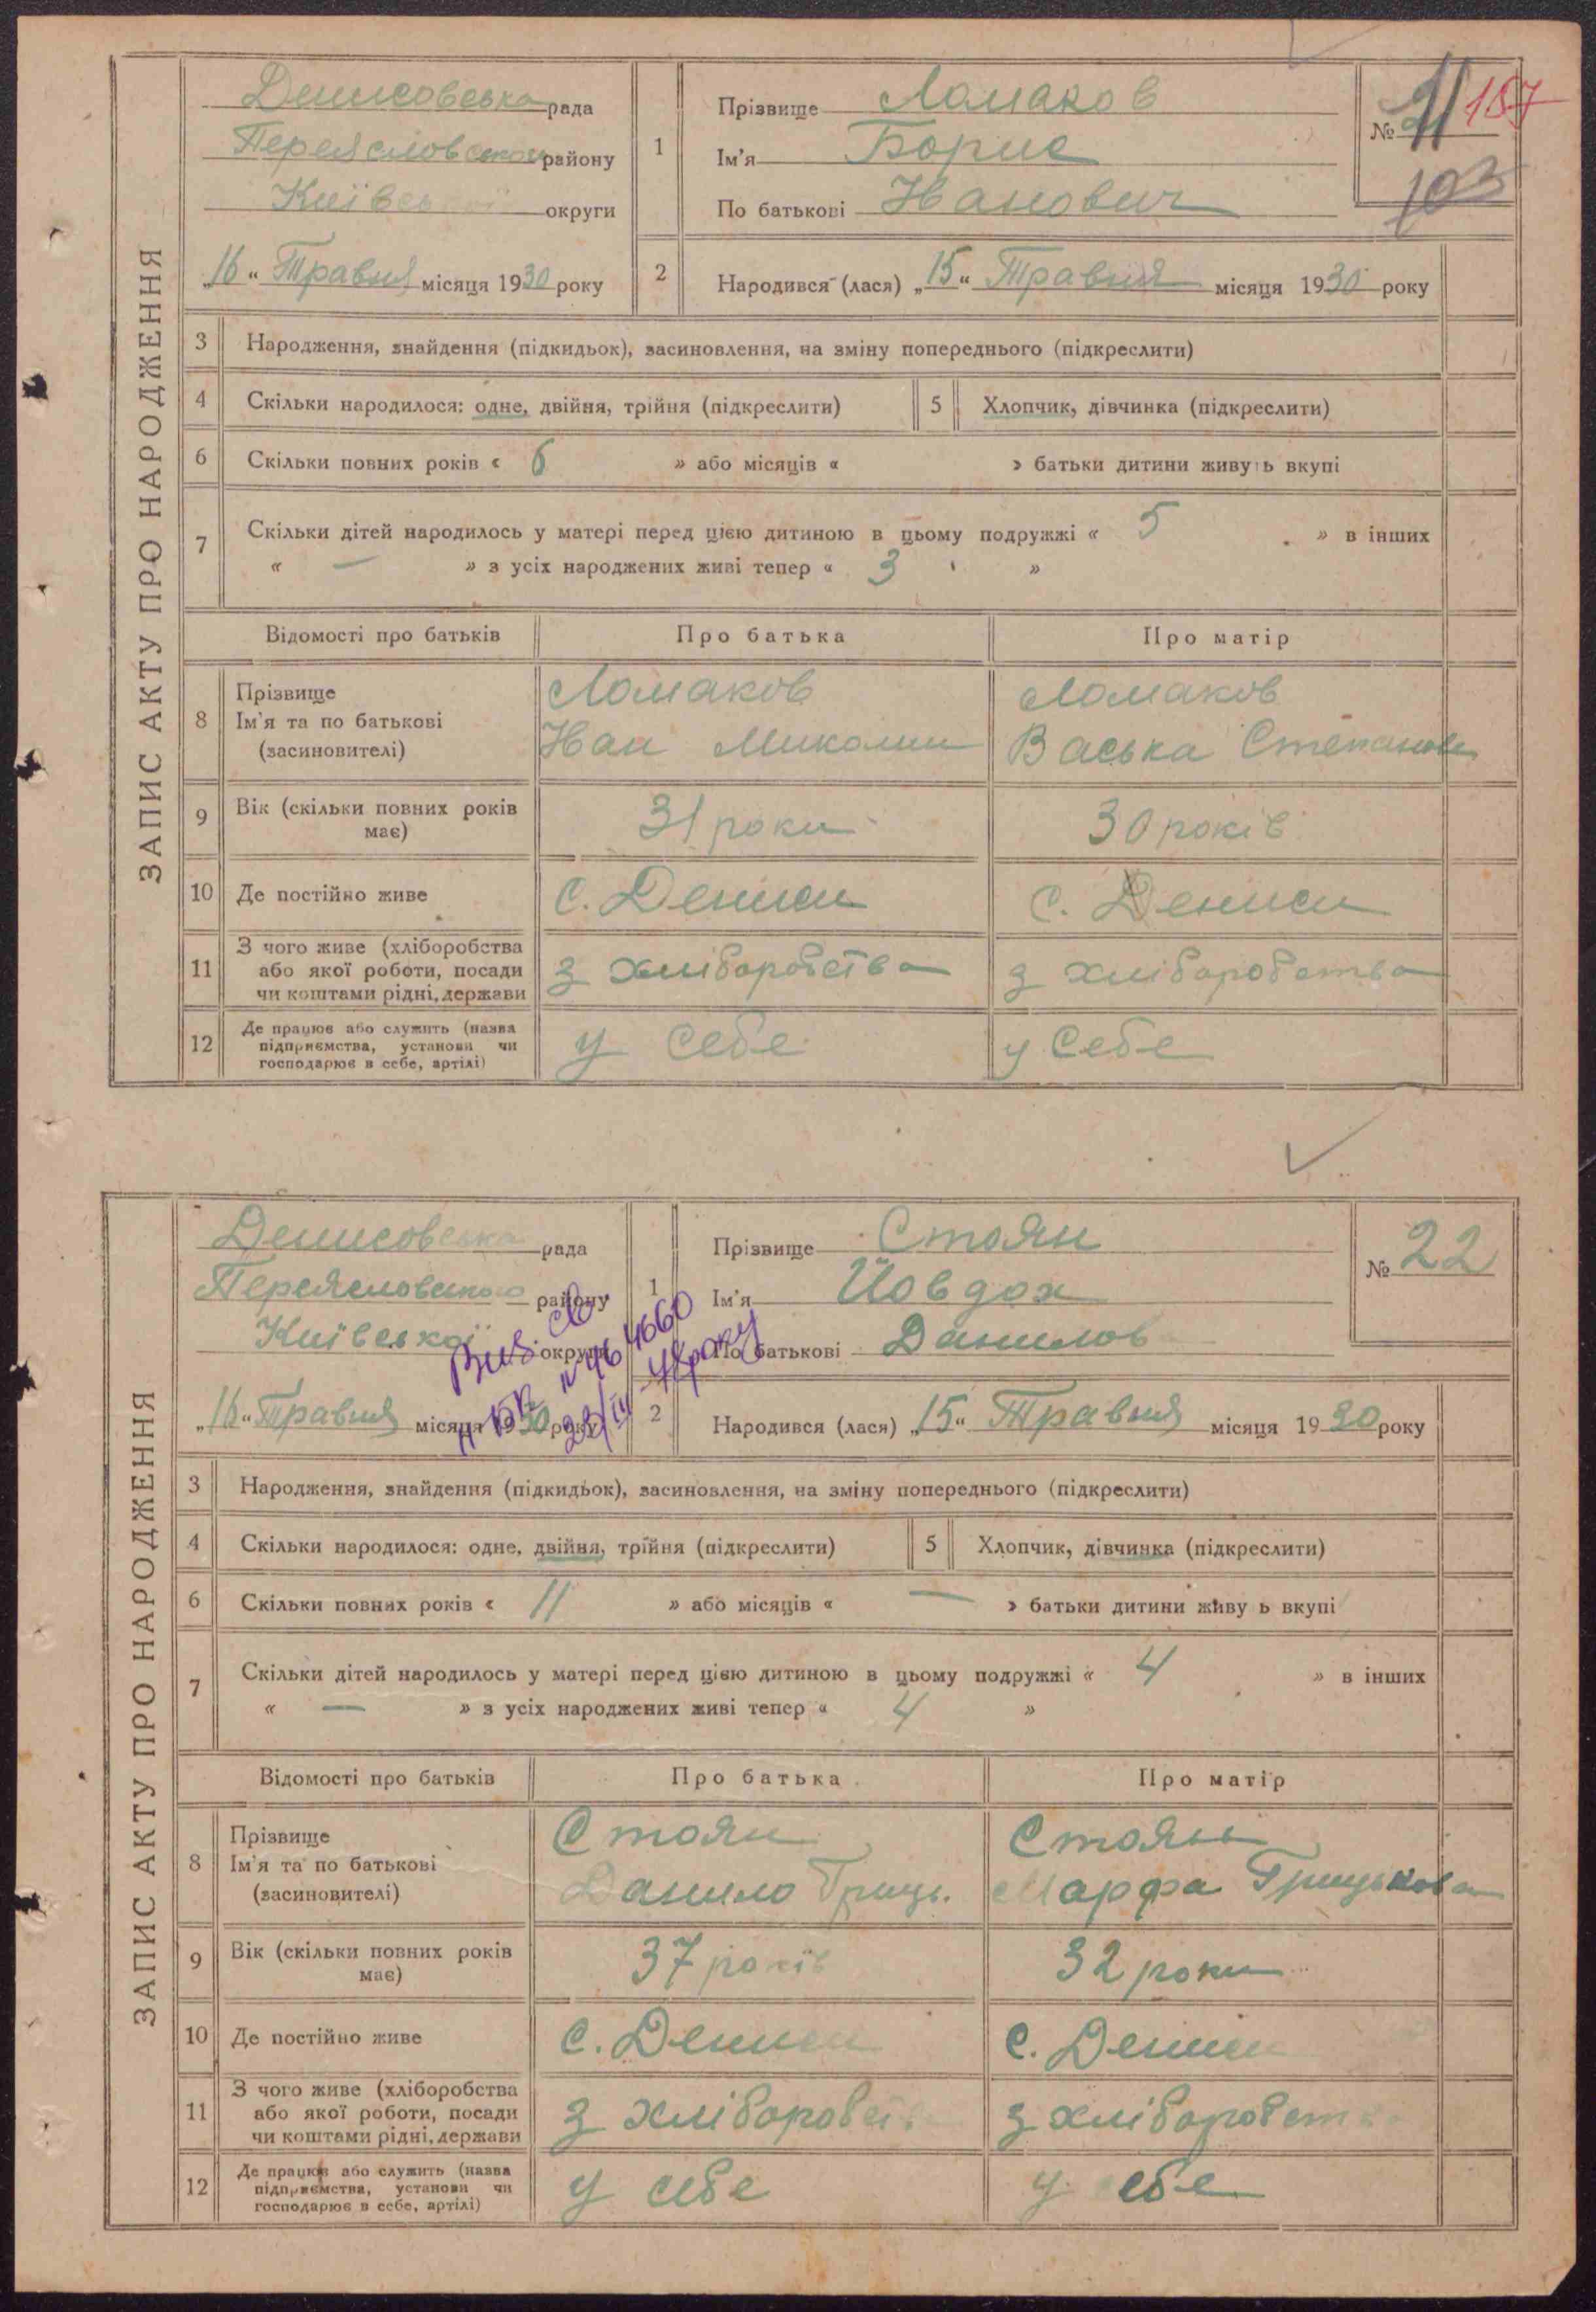 ЗАПИС АКТУ ПРО НАРОДЖЕННЯ
Денисовська рада
Переясловського району
Київської округи
„16“ Травня місяця 1930 року
1
Прізвище Ломаков
Ім'я Борис
По батькові Иванович
№ 21 187
103
2
Народився (лася) „15“ Травня місяця 1930 року
3 Народження, знайдення (підкидьок), засиновлення, на зміну попереднього (підкреслити)
4 Скільки народилося: одне, двійня, трійня (підкреслити) 5 Хлопчик, дівчинка (підкреслити)
6 Скільки повних років « 6 » або місяців « » батьки дитини живуть вкупі
7 Скільки дітей народилось у матері перед цією дитиною в цьому подружжі « 5 » в інших
« — » з усіх народжених живі тепер « 3 »
Відомості про батьків Про батька Про матір
8 Прізвище
Ім'я та по батькові
(засиновителі)
Ломаков
Иван Миколин
Ломаков
Васька Степанов
9 Вік (скільки повних років має) 31 роки 30 років
10 Де постійно живе с. Дениси с. Дениси
11 З чого живе (хліборобства
або якої роботи, посади
чи коштами рідні, держави
з хліборобства з хліборобства
12 Де працює або служить (назва
підприємства, установи чи
господарює в себе, артілі)
у себе у себе
ЗАПИС АКТУ ПРО НАРОДЖЕННЯ
Денисовська рада
Переясловського району
Київської округи
„16“ Травня місяця 1930 року
1
Прізвище Стоян
Ім'я Йовдох
По батькові Данилов
№ 22
2
Народився (лася) „15“ Травня місяця 1930 року
3 Народження, знайдення (підкидьок), засиновлення, на зміну попереднього (підкреслити)
4 Скільки народилося: одне, двійня, трійня (підкреслити) 5 Хлопчик, дівчинка (підкреслити)
6 Скільки повних років « 11 » або місяців « — » батьки дитини живу ь вкупі
7 Скільки дітей народилось у матері перед цією дитиною в цьому подружжі « 4 » в інших
« — » з усіх народжених живі тепер « 4 »
Відомості про батьків Про батька Про матір
8 Прізвище
Ім'я та по батькові
(засиновителі)
Стоян
Данило Гриць.
Стоян
Марфа Грицькова
9 Вік (скільки повних років має) 37 років 32 роки
10 Де постійно живе с. Дениси с. Дениси
11 З чого живе (хліборобства
або якої роботи, посади
чи коштами рідні, держави
з хліборобств з хліборобства
12 Де працює або служить (назва
підприємства, установи чи
господарює в себе, артілі)
у себе у себе